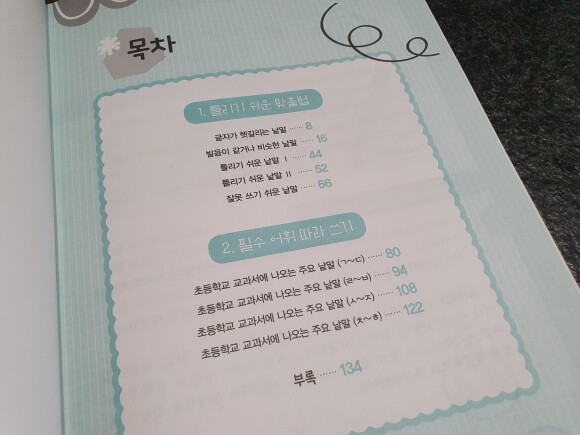 목차
1. 틀리기 쉬운 맞춤법
글자가 헷갈리는 낱말 ······ 8
발음이 같거나 비슷한 낱말 ······ 16
틀리기 쉬운 낱말 Ⅰ ······ 44
틀리기 쉬운 낱말 Ⅱ ······ 52
잘못 쓰기 쉬운 낱말 ······ 66
2. 필수 어휘 따라 쓰기
초등학교 교과서에 나오는 주요 낱말 (ㄱ~ㄷ) ······ 80
초등학교 교과서에 나오는 주요 낱말 (ㄹ~ㅂ) ······ 94
초등학교 교과서에 나오는 주요 낱말 (ㅅ~ㅈ) ······ 108
초등학교 교과서에 나오는 주요 낱말 (ㅊ~ㅎ) ······ 122
부록 ······ 134